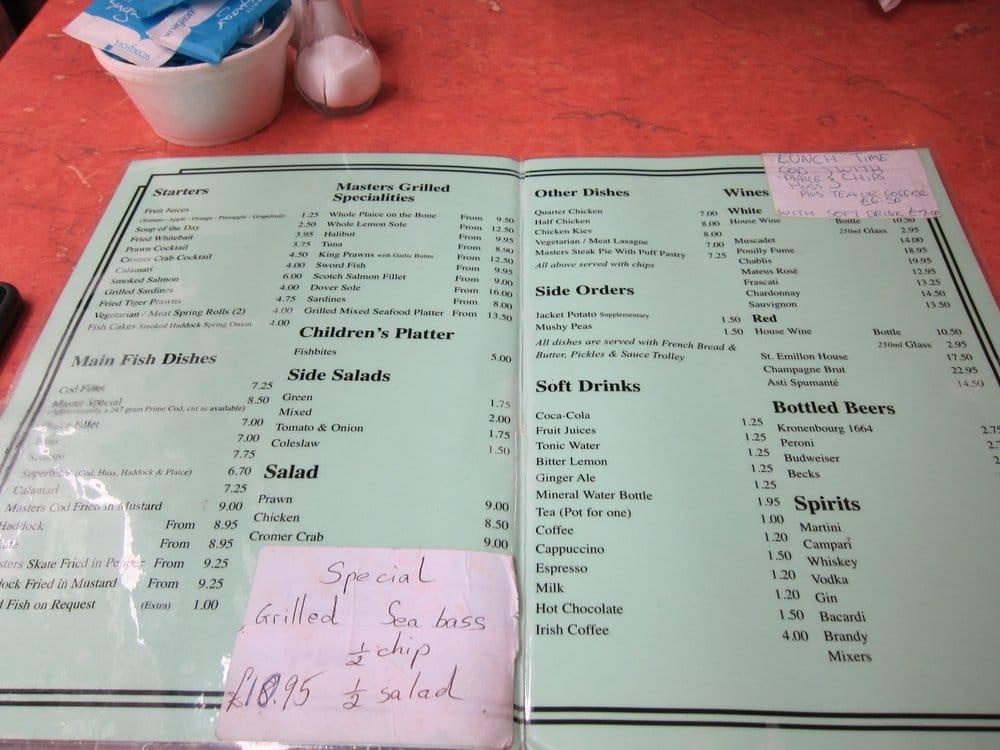 Sugar
Lichfields
Starters
Fruit Juices
(Tomato - Apple - Orange - Pineapple - Grapefruit) 1.25
Soup of the Day 2.50
Fried Whitebait 3.95
Prawn Cocktail 3.75
Cromer Crab Cocktail 4.50
Calamari 4.00
Smoked Salmon 6.00
Grilled Sardines 4.00
Fried Tiger Prawns 4.75
Vegetarian / Meat Spring Rolls (2) 4.00
Fish Cakes Smoked Haddock Spring Onion 4.00
Main Fish Dishes
Cod Fillet 7.25
Master Special 8.50
(Approximately a 247 gram Prime Cod, cut as available)
Fillet 7.00
Huss 7.00
7.75
Superbite (Cod, Huss, Haddock & Plaice) 6.70
Calamari 7.25
Masters Cod Fried in Mustard 9.00
Haddock From 8.95
From 8.95
sters Skate Fried in Pepper From 9.25
dock Fried in Mustard From 9.25
d Fish on Request (Extra) 1.00
Masters Grilled
Specialities
Whole Plaice on the Bone From 9.50
Whole Lemon Sole From 12.50
Halibut From 9.95
Tuna From 8.90
King Prawns with Garlic Butter From 12.50
Sword Fish From 9.95
Scotch Salmon Fillet From 9.00
Dover Sole From 16.00
Sardines From 8.00
Grilled Mixed Seafood Platter From 13.50
Children's Platter
Fishbites 5.00
Side Salads
Green 1.75
Mixed 2.00
Tomato & Onion 1.75
Coleslaw 1.50
Salad
Prawn 9.00
Chicken 8.50
Cromer Crab 9.00
Special
Grilled Sea bass
½ chip
£18.95 ½ salad
Other Dishes
Quarter Chicken 7.00
Half Chicken 8.00
Chicken Kiev 8.00
Vegetarian / Meat Lasagne 7.00
Masters Steak Pie With Puff Pastry 7.25
All above served with chips
Side Orders
Jacket Potato Supplementary 1.50
Mushy Peas 1.50
All dishes are served with French Bread &
Butter, Pickles & Sauce Trolley
Soft Drinks
Coca-Cola 1.25
Fruit Juices 1.25
Tonic Water 1.25
Bitter Lemon 1.25
Ginger Ale 1.25
Mineral Water Bottle 1.95
Tea (Pot for one) 1.00
Coffee 1.20
Cappuccino 1.50
Espresso 1.20
Milk 1.20
Hot Chocolate 1.50
Irish Coffee 4.00
LUNCH TIME
COD WITH
PLAICE CHIPS
HUSS
PLUS TEA OR COFFEE
£6.50
WITH SOFT DRINK £7.00
Wines
White
House Wine Bottle 10.50
250ml Glass 2.95
Muscadet 14.00
Pouilly Fume 18.95
Chablis 19.95
Mateus Rosé 12.95
Frascati 13.25
Chardonnay 14.50
Sauvignon 13.50
Red
House Wine Bottle 10.50
250ml Glass 2.95
St. Emillon House 17.50
Champagne Brut 22.95
Asti Spumanté 14.50
Bottled Beers
Kronenbourg 1664 2.75
Peroni 2.7
Budweiser 2
Becks
Spirits
Martini
Campari
Whiskey
Vodka
Gin
Bacardi
Brandy
Mixers